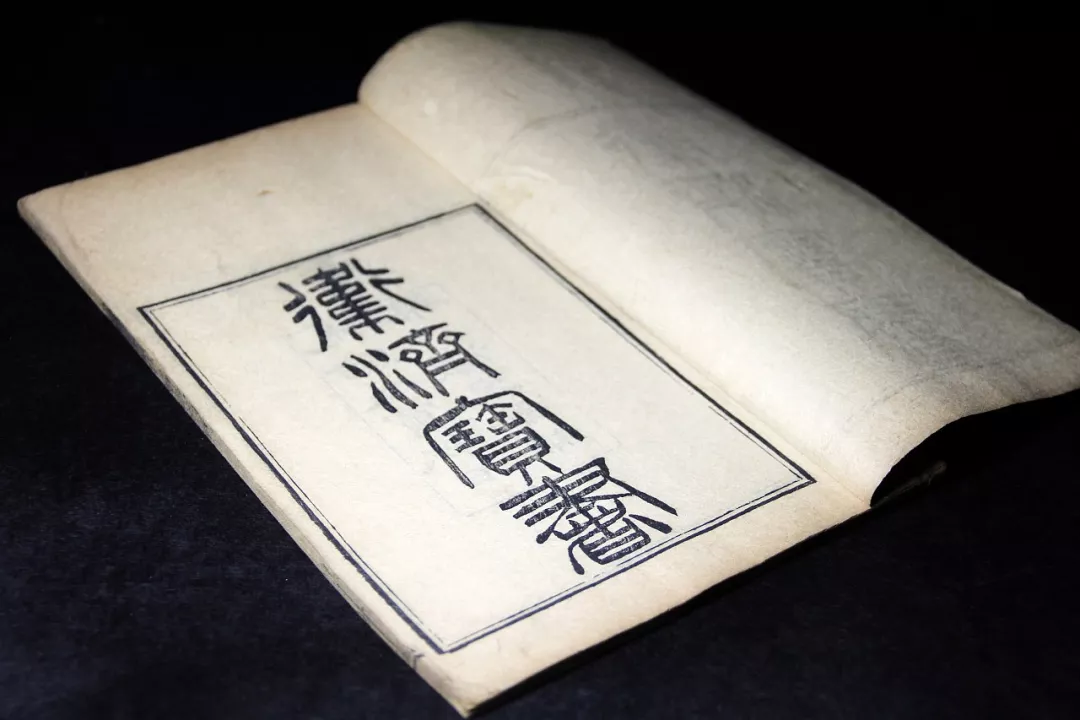 衛濟寶書